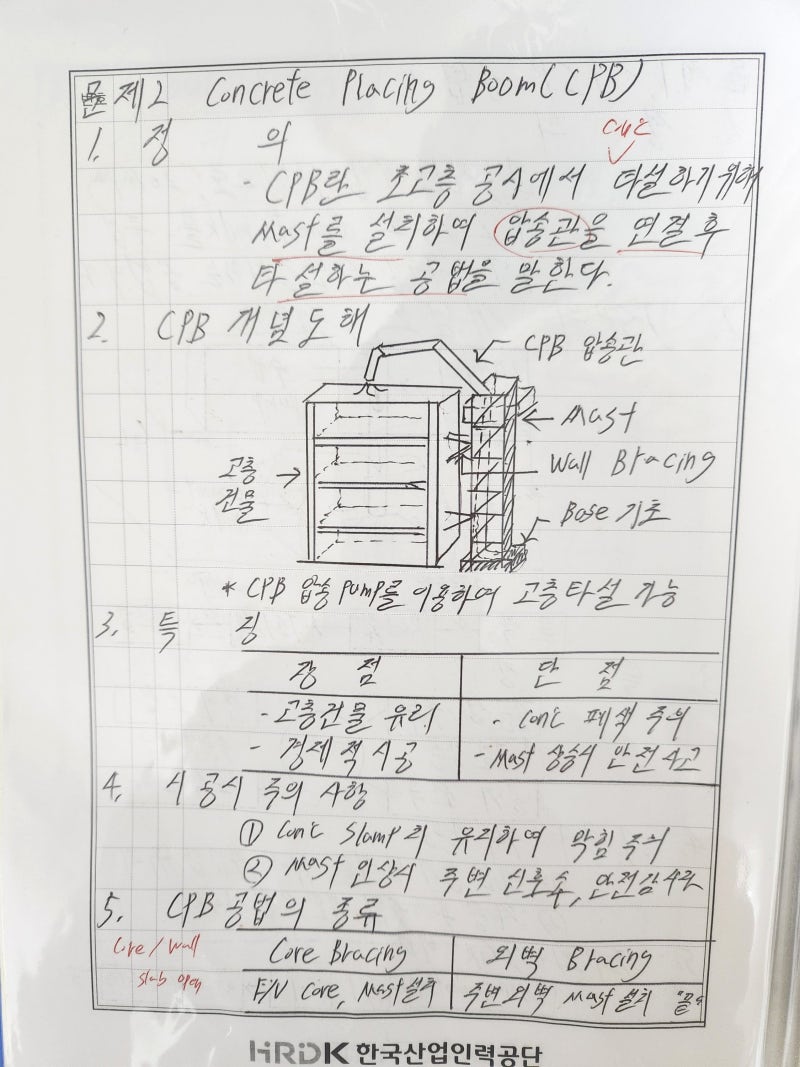 문제2 Concrete Placing Boom(CPB)
1. 정 의
con'c
- CPB란 초고층 공사에서 타설하기위해
Mast를 설치하여 압송관을 연결 후
타설하는 공법을 말한다.
2. CPB 개념도해
CPB 압송관
Mast
Wall Bracing
고층
건물
Base 기초
* CPB 압송 PUMP를 이용하여 고층타설 가능
3. 특 징
장 점 단 점
- 고층건물 유리 - con'c 폐색 주의
- 경제적시공 - Mast 상승시 안전사고
4. 시공시 주의사항
① Con'c Slamp 관리 유의하여 막힘주의
② Mast 인상시 주변 신호수, 안전감시
5. CPB 공법의 종류
Core / Wall
slab open
Core Bracing 외벽 Bracing
E/V Core, Mast설치 주변외벽 Mast 설치 "끝"
HRDK 한국산업인력공단